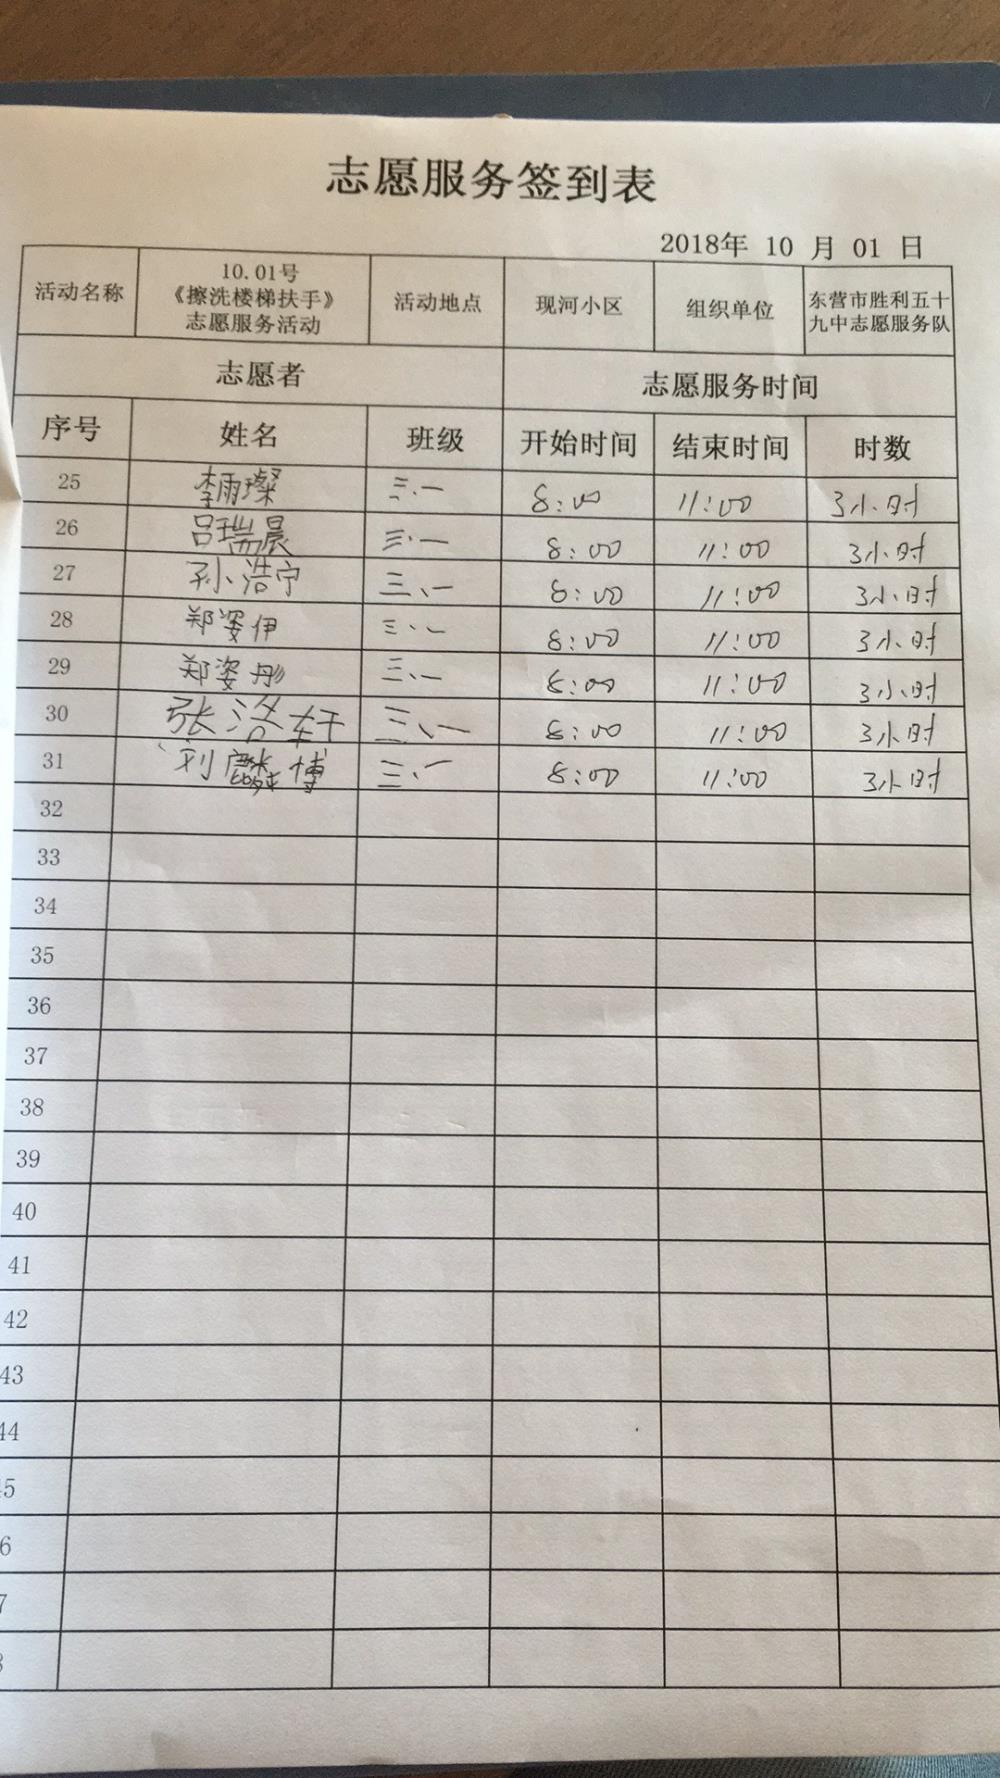 志愿服务签到表
2018年 10 月 01 日
活动名称 10.01号《擦洗楼梯扶手》志愿服务活动 活动地点 现河小区 组织单位 东营市胜利五十九中志愿服务队
志愿者 志愿服务时间
序号 姓名 班级 开始时间 结束时间 时数
25 李雨璨 三.一 8:00 11:00 3小时
26 吕瑞晨 三.一 8:00 11:00 3小时
27 孙浩宁 三、一 8:00 11:00 3小时
28 郑姿伊 三.一 8:00 11:00 3小时
29 郑姿彤 三.一 8:00 11:00 3小时
30 张洛轩 三、一 8:00 11:00 3小时
31 刘麟博 三.一 8:00 11:00 3小时
32
33
34
35
36
37
38
39
40
41
42
43
44
45
6
7